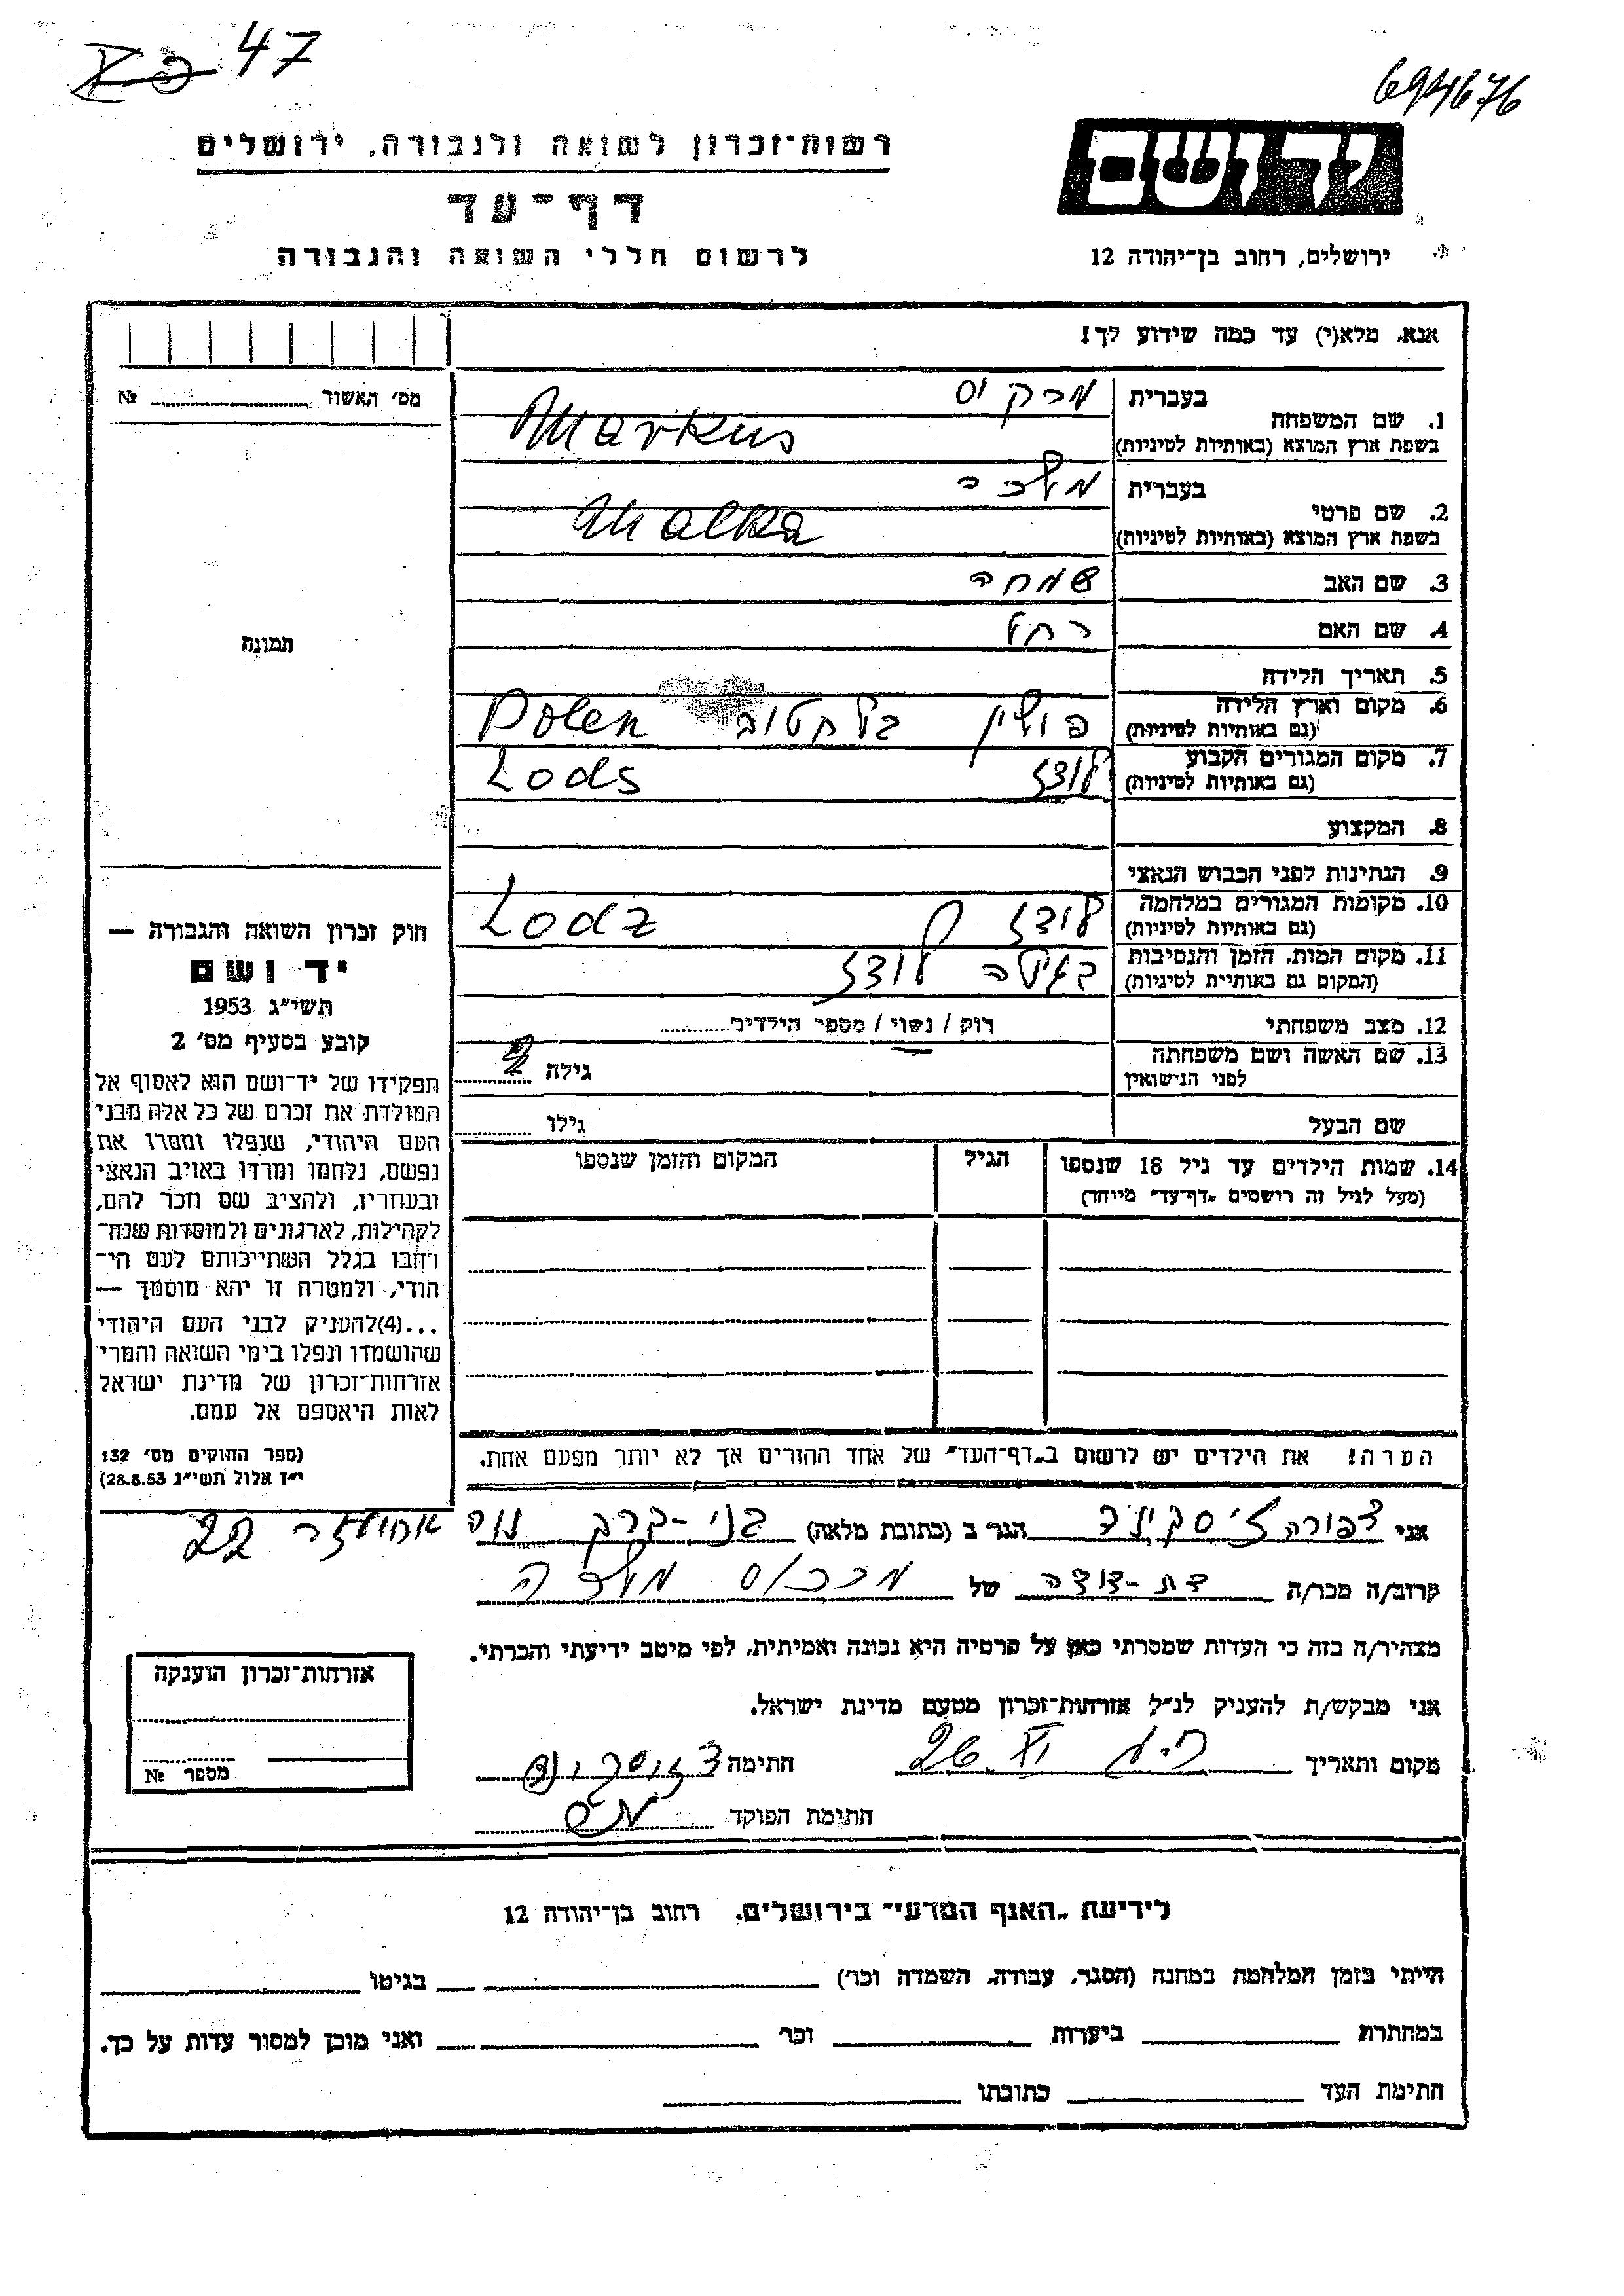 47
694676
רשות־זכרון לשואה ולגבורה, ירושלים
דף־עד
לרשום חללי השואה והגבורה
יד ושם
ירושלים, רחוב בן־יהודה 12
אנא, מלא(י) עד כמה שידוע לך!
מס' האשור № 
1. שם המשפחה
בעברית מרקוס
בשפת ארץ המוצא (באותיות לטיניות) Markus
2. שם פרטי
בעברית מלכה
בשפת ארץ המוצא (באותיות לטיניות) Malka
3. שם האב שמחה
4. שם האם רחל
תמונה
5. תאריך הלידה
6. מקום וארץ הלידה
(גם באותיות לטיניות) פולין בלחטוב Polen
7. מקום המגורים הקבוע
(גם באותיות לטיניות) לודז Lods
8. המקצוע
9. הנתינות לפני הכבוש הנאצי
10. מקומות המגורים במלחמה
(גם באותיות לטיניות) לודז Lodz
11. מקום המות, הזמן והנסיבות
(המקום גם באותיית לטיניות) לודז
12. מצב משפחתי רוק / נשוי / מספר הילדים
13. שם האשה ושם משפחתה
לפני הנישואין גילה
שם הבעל גילו
14. שמות הילדים עד גיל 18 שנספו
(מעל לגיל זה רושמים „דף־עד" מיוחד)
הגיל
המקום והזמן שנספו
הערה! את הילדים יש לרשום ב„דף־העד" של אחד ההורים אך לא יותר מפעם אחת.
חוק זכרון השואה והגבורה —
יד ושם
תשי"ג 1953
קובע בסעיף מס' 2
תפקידו של יד־ושם הוא לאסוף אל
המולדת את זכרם של כל אלה מבני
העם היהודי, שנפלו ומסרו את
נפשם, נלחמו ומרדו באויב הנאצי
ובעוזריו, ולהציב שם וזכר להם,
לקהילות, לארגונים ולמוסדות שנח־
רבו בגלל השתייכותם לעם הי־
הודי, ולמטרה זו יהא מוסמך —
...(4)להעניק לבני העם היהודי
שהושמדו ונפלו בימי השואה והמרי
אזרחות־זכרון של מדינת ישראל
לאות היאספם אל עמם.
(ספר החוקים מס' 132
י"ז אלול תשי"ג 28.8.53)
אני צפורה הגר ב (כתובת מלאה) בני-ברק נוה אחיעזר 22
קרוב/ה מכר/ה בת-דודה של מרכוס מלכה
מצהיר/ה בזה כי העדות שמסרתי כאן על פרטיה היא נכונה ואמיתית, לפי מיטב ידיעתי והכרתי.
אני מבקש/ת להעניק לנ"ל אזרחות־זכרון מטעם מדינת ישראל.
מקום ותאריך 26.VI חתימה
חתימת הפוקד
אזרחות־זכרון הוענקה
מספר №
לידיעת „האגף המדעי" בירושלים, רחוב בן־יהודה 12
הייתי בזמן המלחמה במחנה (הסגר, עבודה, השמדה וכו') בגיטו
במחתרת ביערות וכו' ואני מוכן למסור עדות על כך.
חתימת העד כתובתו